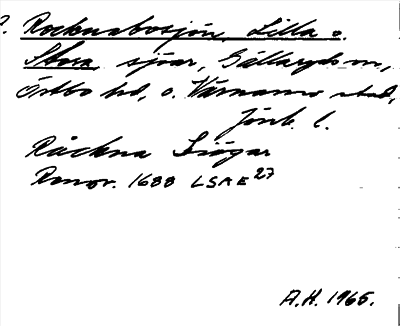 ?. Rocknabosjön, Lilla o.
Stora sjöar, Gällaryds sn,
Östbo hd, o. Värnamo stad,
Jönk. l.
Råckna Siögar
Ranor. 1688 LSAE 27
A.H. 1965.